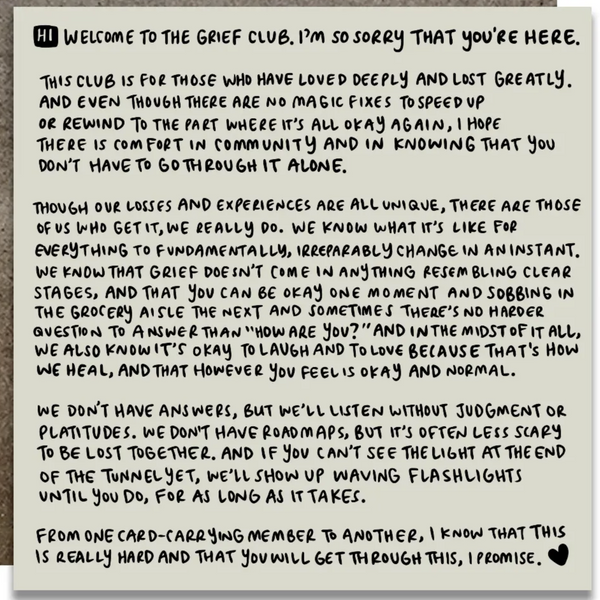 HI WELCOME TO THE GRIEF CLUB. I'M SO SORRY THAT YOU'RE HERE.
THIS CLUB IS FOR THOSE WHO HAVE LOVED DEEPLY AND LOST GREATLY.
AND EVEN THOUGH THERE ARE NO MAGIC FIXES TO SPEED UP
OR REWIND TO THE PART WHERE IT'S ALL OKAY AGAIN, I HOPE
THERE IS COMFORT IN COMMUNITY AND IN KNOWING THAT YOU
DON'T HAVE TO GO THROUGH IT ALONE.
THOUGH OUR LOSSES AND EXPERIENCES ARE ALL UNIQUE, THERE ARE THOSE
OF US WHO GET IT, WE REALLY DO. WE KNOW WHAT IT'S LIKE FOR
EVERYTHING TO FUNDAMENTALLY, IRREPARABLY CHANGE IN AN INSTANT.
WE KNOW THAT GRIEF DOESN'T COME IN ANYTHING RESEMBLING CLEAR
STAGES, AND THAT YOU CAN BE OKAY ONE MOMENT AND SOBBING IN
THE GROCERY AISLE THE NEXT AND SOMETIMES THERE'S NO HARDER
QUESTION TO ANSWER THAN "HOW ARE YOU?" AND IN THE MIDST OF IT ALL,
WE ALSO KNOW IT'S OKAY TO LAUGH AND TO LOVE BECAUSE THAT'S HOW
WE HEAL, AND THAT HOWEVER YOU FEEL IS OKAY AND NORMAL.
WE DON'T HAVE ANSWERS, BUT WE'LL LISTEN WITHOUT JUDGMENT OR
PLATITUDES. WE DON'T HAVE ROADMAPS, BUT IT'S OFTEN LESS SCARY
TO BE LOST TOGETHER. AND IF YOU CAN'T SEE THE LIGHT AT THE END
OF THE TUNNEL YET, WE'LL SHOW UP WAVING FLASHLIGHTS
UNTIL YOU DO, FOR AS LONG AS IT TAKES.
FROM ONE CARD-CARRYING MEMBER TO ANOTHER, I KNOW THAT THIS
IS REALLY HARD AND THAT YOU WILL GET THROUGH THIS, I PROMISE. ♥